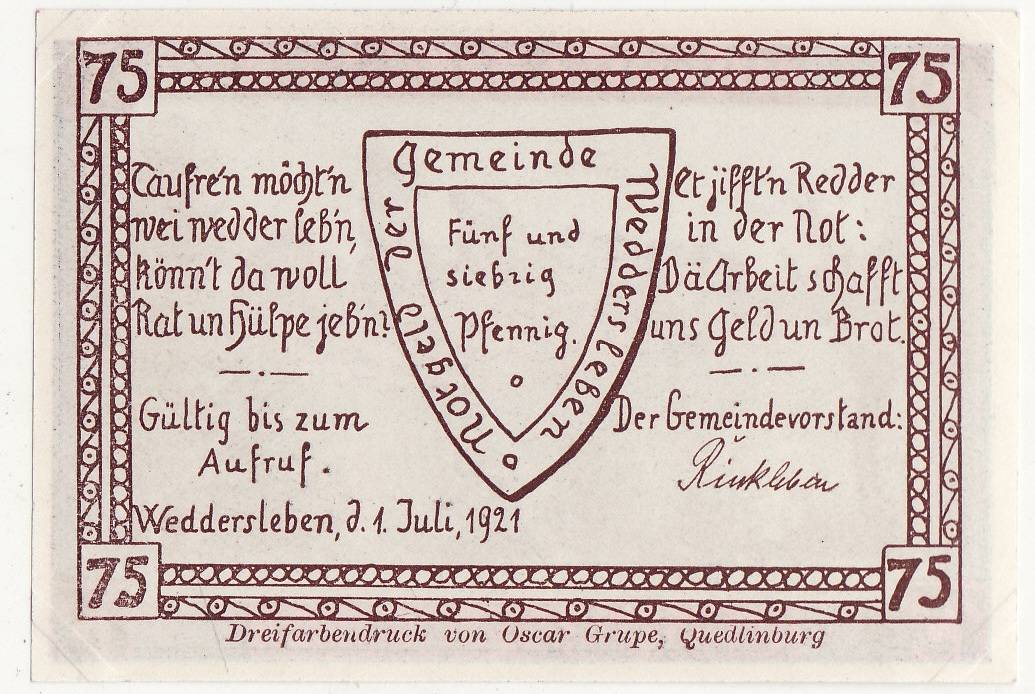 75
75
Taufre'n möcht'n
wei wedder leb'n,
könn't da woll
Rat un Hülpe jeb'n?
Gültig bis zum
Aufruf.
Weddersleben, d. 1. Juli, 1921
Gemeinde
Weddersleben
Notgeld der
Fünf und
siebzig
Pfennig.
Et jifft'n Redder
in der Not:
Dä Arbeit schafft
uns Geld un Brot.
Der Gemeindevorstand:
75
75
Dreifarbendruck von Oscar Grupe, Quedlinburg